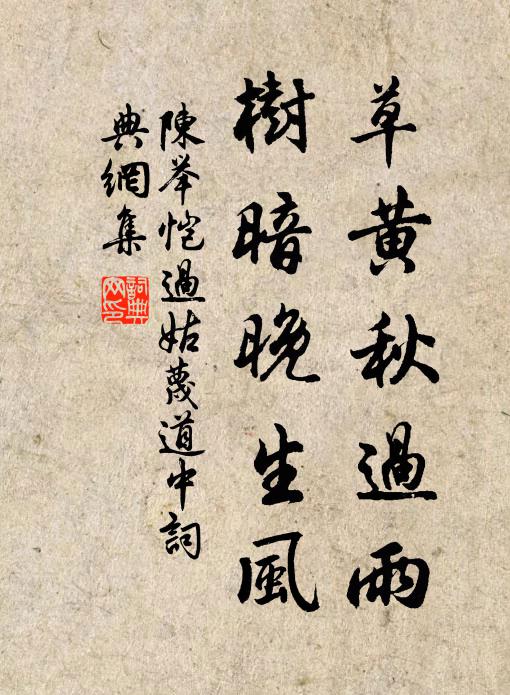 草黄秋過雨
樹暗晚生風
陳举恺過姑蔑道中詞
典網集
詞典
网印